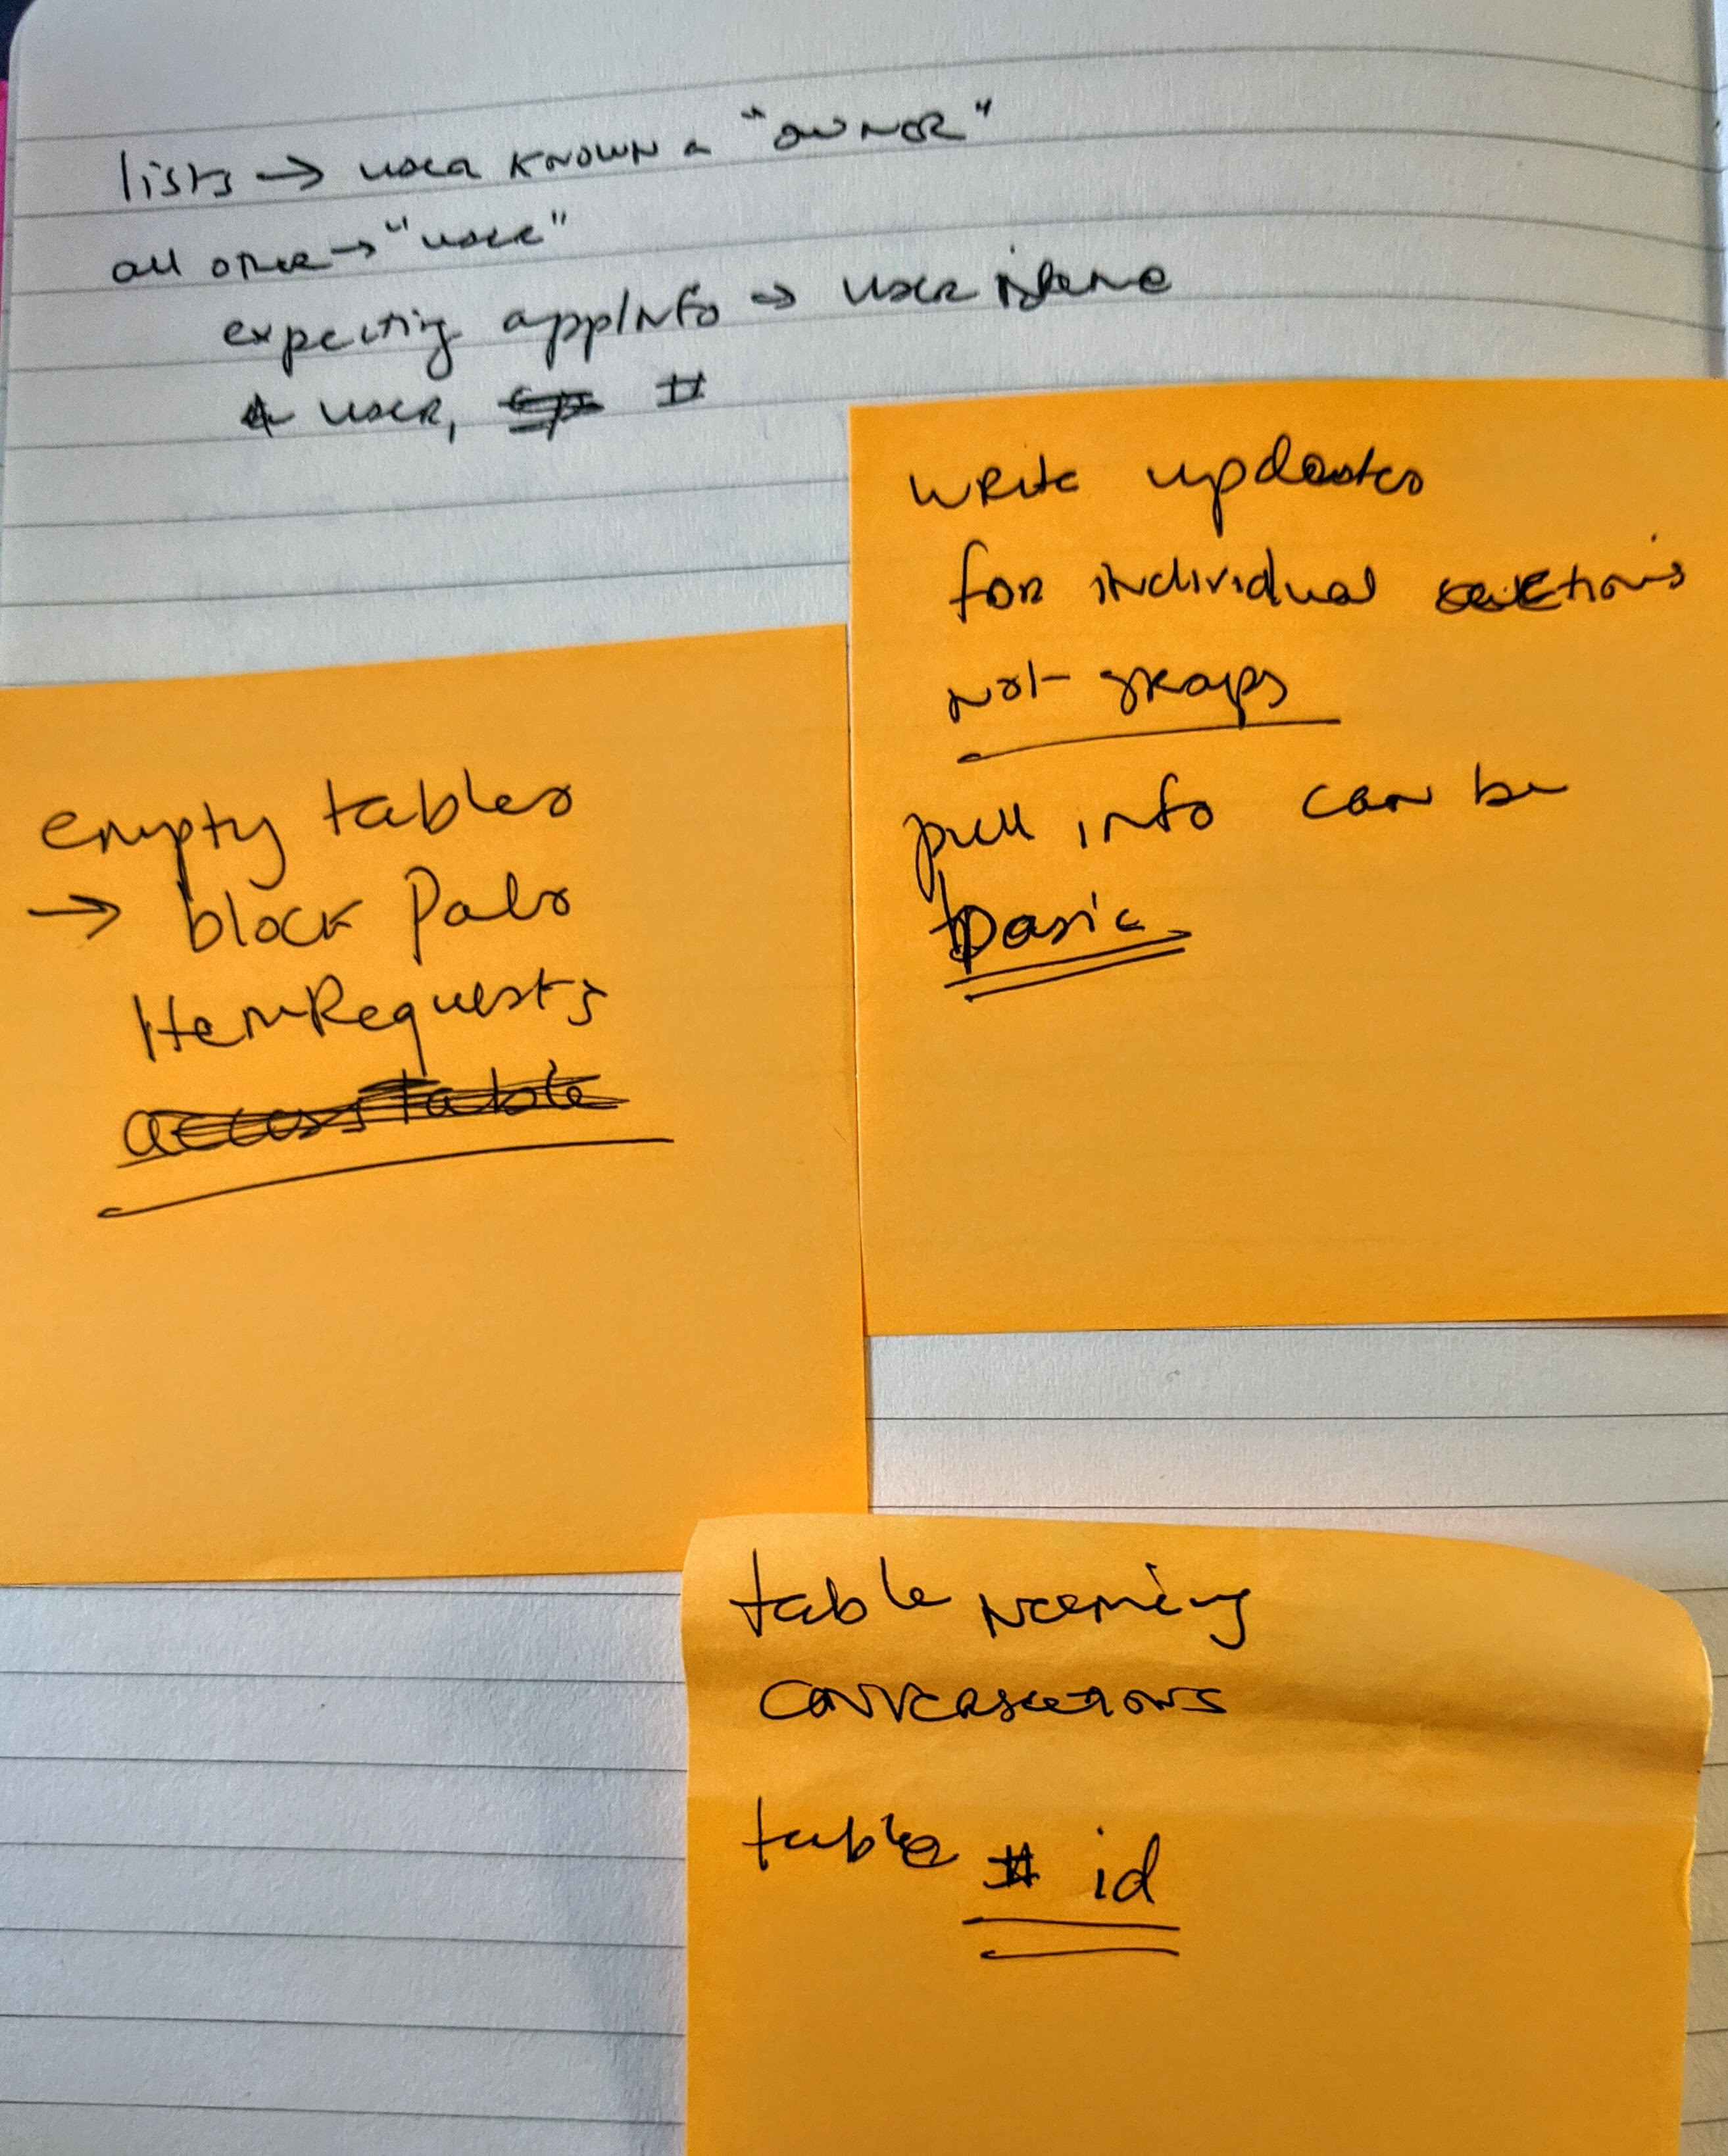 lists → user known a "owner"
all other → "user"
expecting appInfo → user
user, #
write updates
for individual
not groups
pull info can be
basic
empty tables
→ block Pals
ItemRequests
accessTable
table naming
conversations
table # id